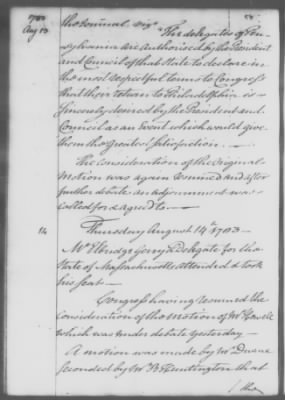 1783
Aug 13
the Journal, viz.
The delegates of Pen-
sylvania are Authorised by the President
and Council of that State to declare in
the most respectful terms to Congress
that their return to Philadelphia is
sincerely desired by the President and
Council as an Event which would give
them the greatest satisfaction.
The consideration of the original
motion was again resumed and after
further debate an adjournment was
called for & agreed to
14
Thursday August 14th 1783
Mr Elbridge Gerry a Delegate for the
State of Massachusetts attended & took
his seat
Congress having resumed the
consideration of the Motion of Mr Howell
which was under debate yesterday
A motion was made by Mr Duane
seconded by Mr B Huntington that
the